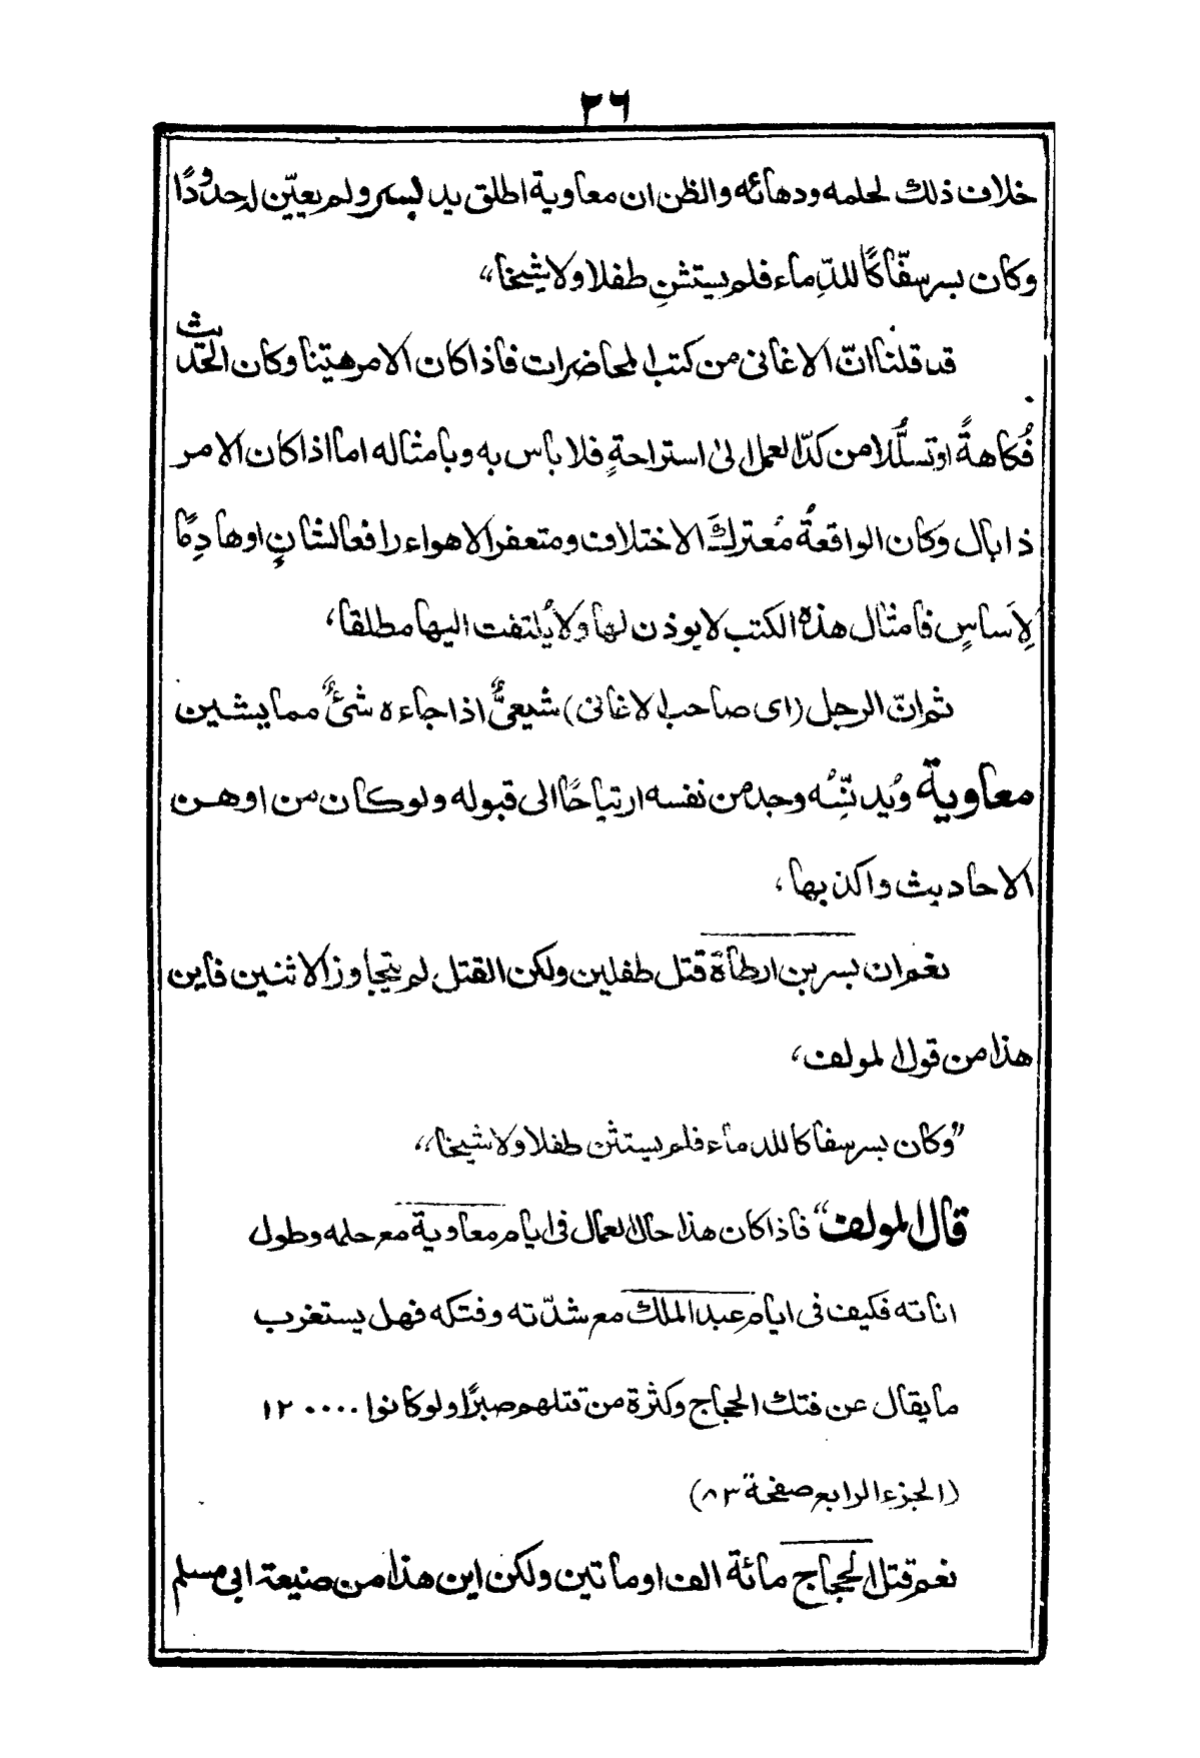 ٢٦
خلاف ذلك لحلمه ودهائه والظن ان معاوية اطلق يد بسر ولم يعيّن له حدودًا
وكان بسر سفّاكًا للدِّماء فلم يستثنِ طفلا ولا شيخا“
قد قلنا انّ الاغانى من كتب المحاضرات فاذا كان الامر هيّنا وكان الحَدث
فُكاهةً او تسلُّلا من كدّ العمل الىٰ استراحةٍ فلا باس به وبامثاله اما اذا كان الامر
ذا بال وكان الواقعةُ مُعتركَ الاختلاف ومتعفر الاهواء رافعا لشانٍ او هادِمًا
لِاَساسٍ فامثال هذه الكتب لا يوذن لها ولا يُلتفت اليها مطلقا،
ثم انّ الرجل (اى صاحب الاغانى) شيعىٌّ اذا جاءه شئٌ مما يشين
معاوية ويُدنِّسُه وجد من نفسه ارتياحًا الى قبوله ولو كان من اوهن
الاحاديث واكذبها،
نعم ان بسر بن ارطاة قتل طفلين ولكن القتل لم يتجاوز الاثنين فاين
هذا من قول المولف،
”وكان بسر سفاكا للدماء فلم يستثن طفلا ولا شيخا،،
قال المولف“ فاذا كان هذا حال العمال فى ايام معاوية مع حلمه وطول
اناته فكيف فى ايام عبد الملك مع شدّته وفتكه فهل يستغرب
ما يقال عن فتك الحجاج وكثرة من قتلهم صبرًا ولو كانوا ١٢٠٠٠٠
(الجزء الرابع صفحة ٨٣)
نعم قتل الحجاج مائة الف او ماتين ولكن اين هذا من صنيعة ابى مسلم